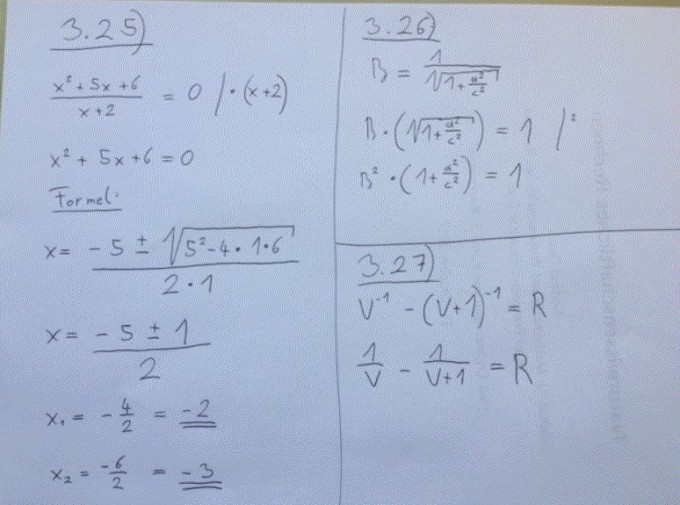 3.25)
x² + 5x + 6 / x + 2 = 0 / · (x+2)
x² + 5x + 6 = 0
Formel:
x = -5 ± √(5² - 4 · 1 · 6) / 2 · 1
x = -5 ± 1 / 2
x₁ = -4/2 = -2
x₂ = -6/2 = -3
3.26)
B = 1 / √(1 + a²/c²)
B · (√(1 + a²/c²)) = 1 /²
B² · (1 + a²/c²) = 1
3.27)
V⁻¹ - (V+1)⁻¹ = R
1/V - 1/V+1 = R